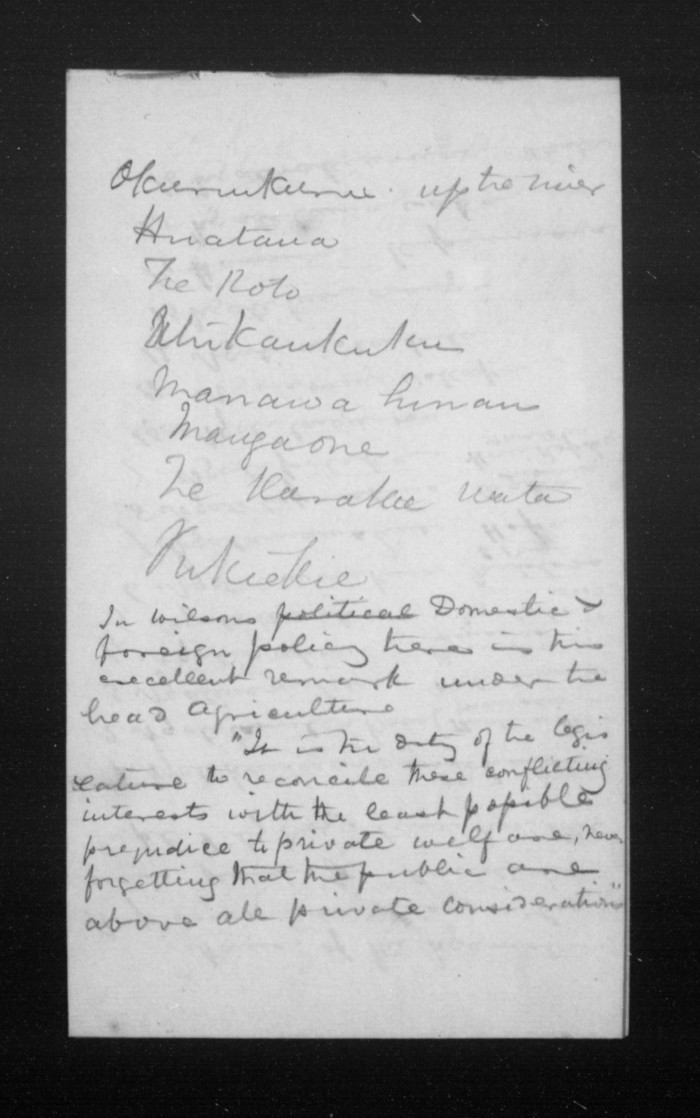 up the river
Huatana
Te Roto
Manawa hinau
Mangaone
Te Karaka
Pukiekie
In Wilsons ~~political~~ Domestic &
foreign policy there is this
excellent remark under the
head Agriculture
"It is the duty of the legis
lature to reconcile these conflicting
interests with the least possible
prejudice to private welfare, never
forgetting that the public are
above all private considerations"